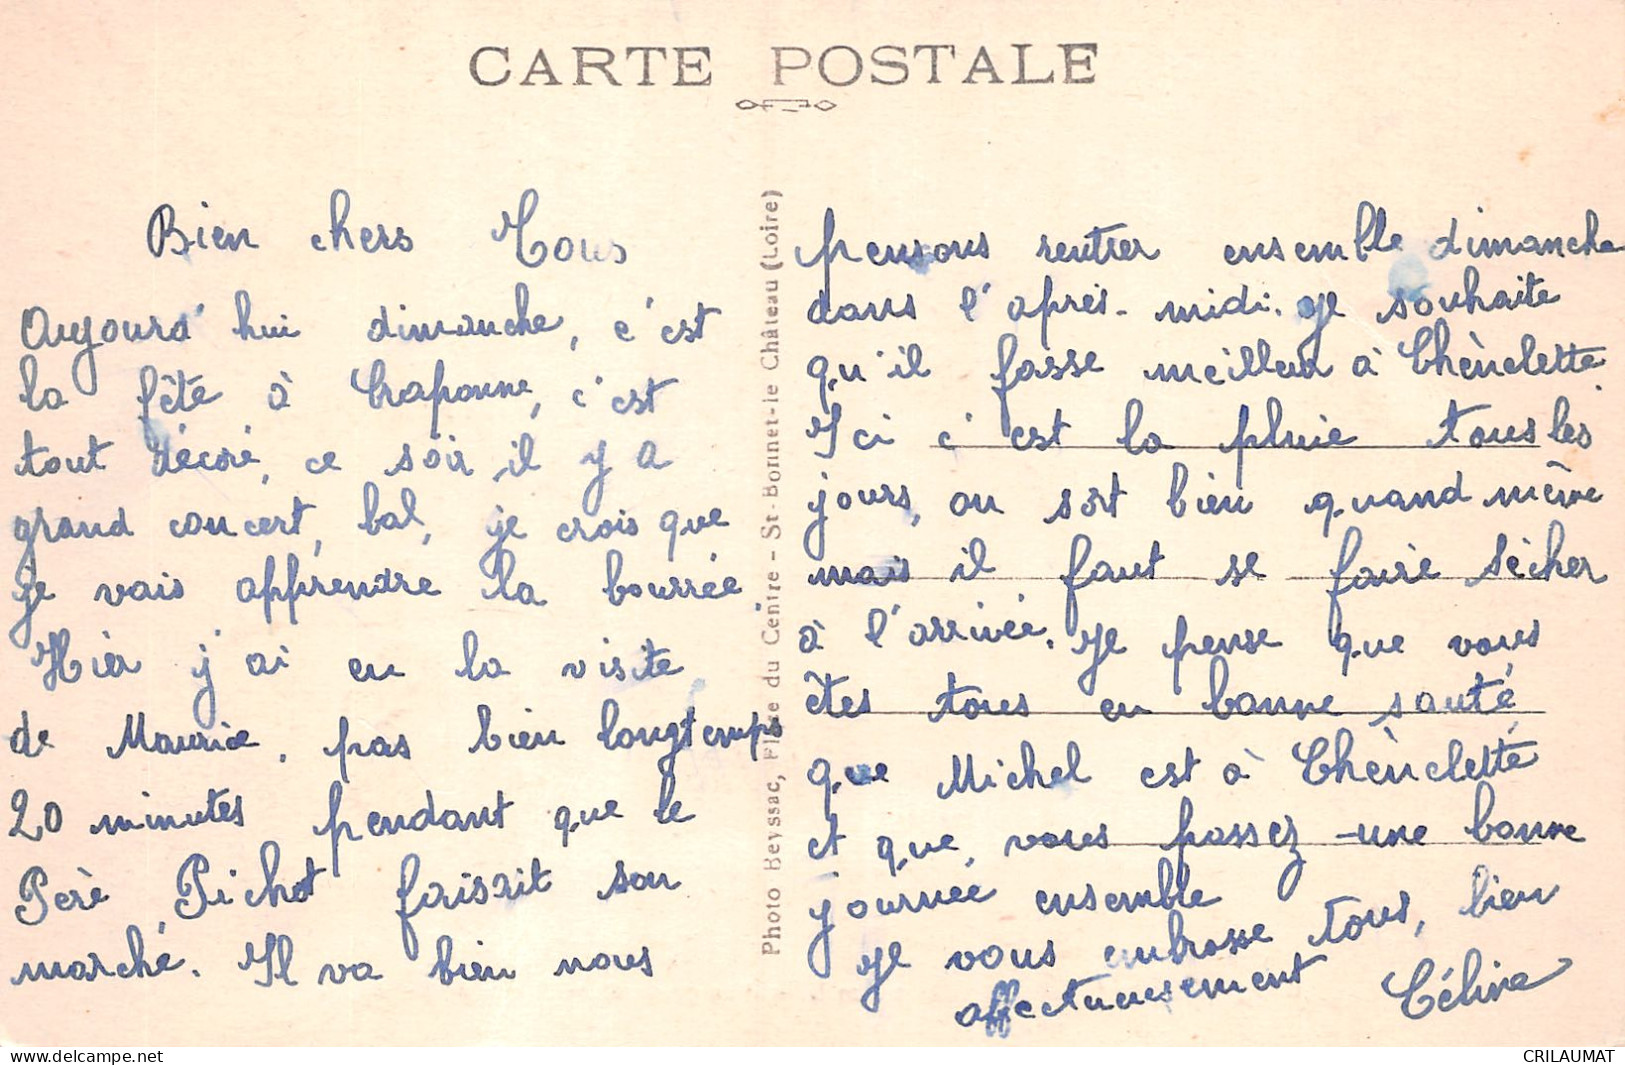 CARTE POSTALE
Bien chers Tous
Aujourd'hui dimanche, c'est
la fête à Craponne, c'est
tout décoré, ce soir il y a
grand concert, bal, je crois que
je vais apprendre la bourrée.
Hier j'ai eu la visite
de Maurice, pas bien longtemps
20 minutes pendant que le
Père Pichot faisait son
marché. Il va bien nous
Photo Beyssac, Place du Centre - St-Bonnet-le Château (Loire)
pensons rentrer ensemble dimanche
dans l'après-midi. Je souhaite
qu'il fasse meilleur à Chènelette.
Ici c'est la pluie tous les
jours, on sort bien quand même
mais il faut se faire sécher
à l'arrivée. Je pense que vous
êtes tous en bonne santé,
que Michel est à Chènelette
et que vous passez une bonne
journée ensemble
Je vous embrasse tous, bien
affectueusement Céline
www.delcampe.net
CRILAUMAT